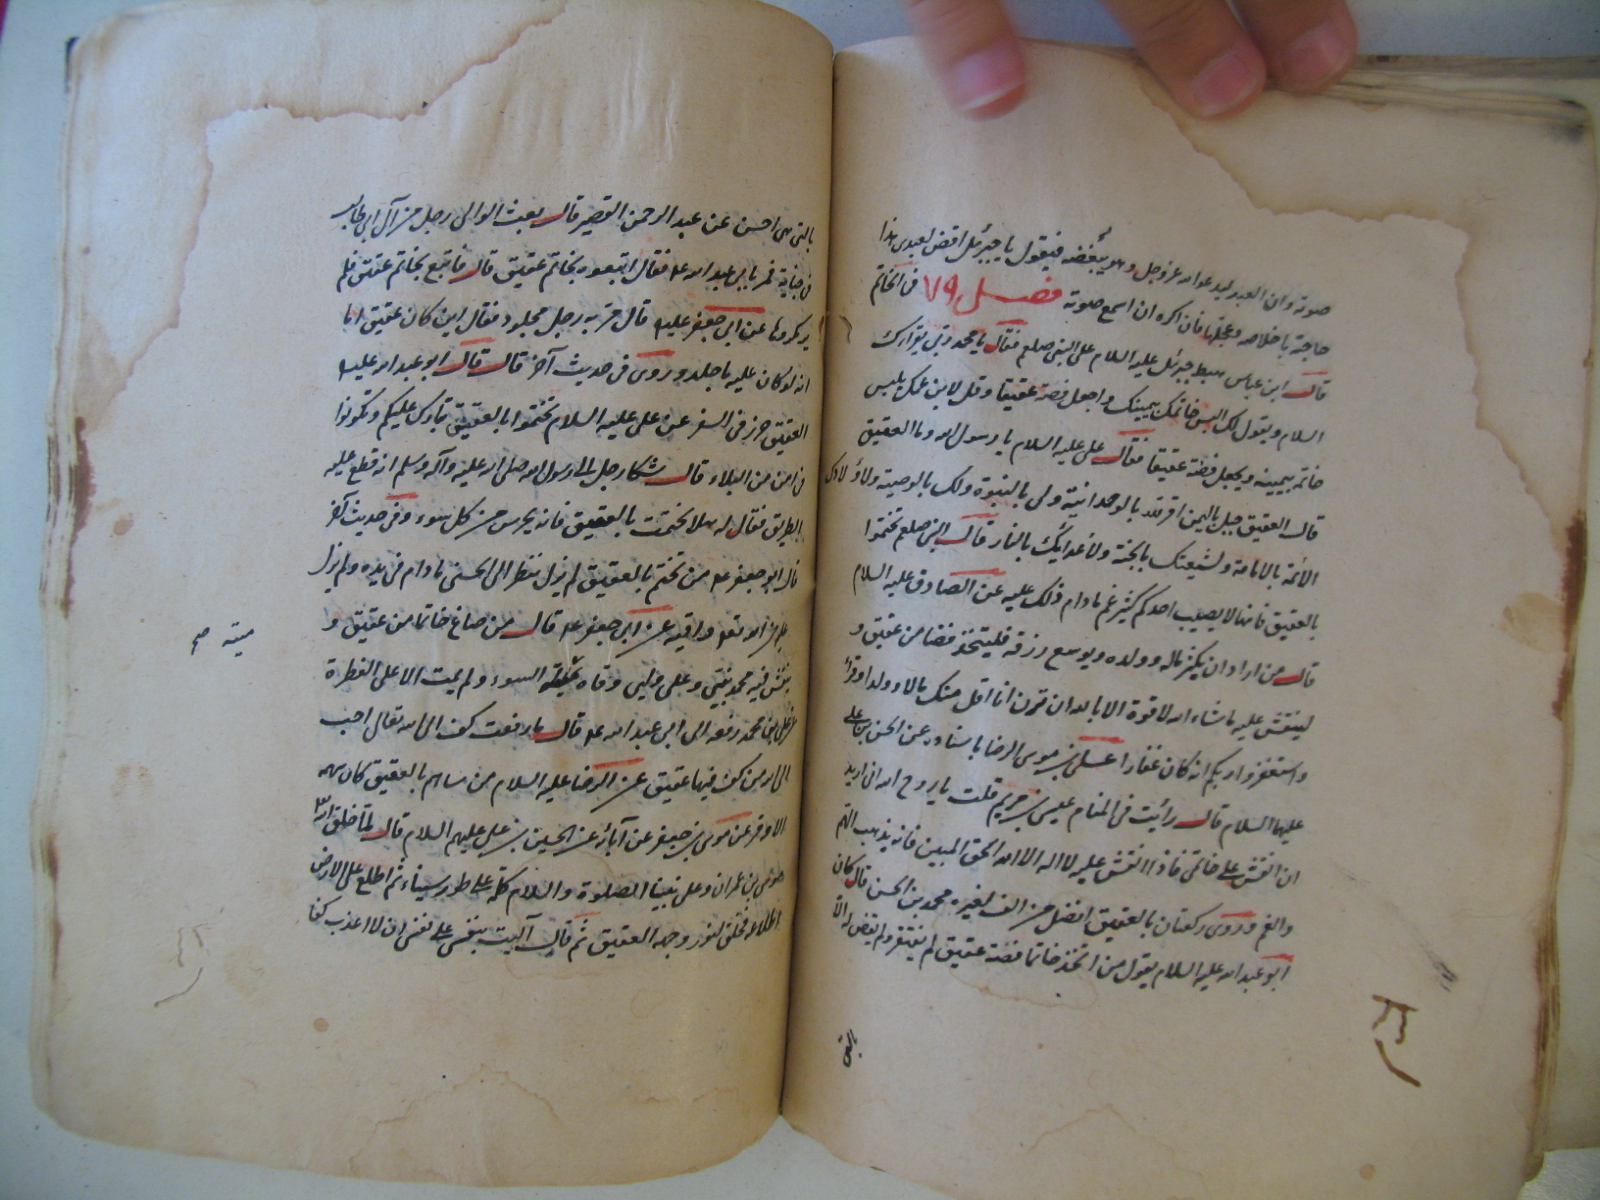 صوته وان العبد ليدعو الله عز وجل وهو يبغضه فيقول يا جبرئيل اقض لعبدى هذا
حاجته باخلاصه وعجلها فان اكره ان اسمع صوته فصل ٧٩ فى الخاتم
قال ابن عباس هبط جبرئيل عليه السلام على النبى صلعم فقال يا محمد ربى يقرأك
السلام ويقول لك البس خاتمك بيمينك واجعل فصه عقيقا وقل لابن عمك يلبس
خاتمه بيمينه ويجعل فصه عقيقا فقال على عليه السلام يا رسول الله وما العقيق
قال العقيق جبل باليمن اقر لله بالوحدانية ولى بالنبوة ولك بالوصية ولاولادك
الائمة بالامامة ولشيعتك بالجنة ولاعدائك بالنار قال النبى صلعم تختموا
بالعقيق فانها لا يصيب احدكم كثير غم مادام ذلك عليه عن الصادق عليه السلام
قال من اراد ان يكثر ماله وولده ويوسع رزقه فليتخذ فصا من عقيق و
لينقش عليه ما شاء الله لا قوة الا بالله ان ترن انا اقل منك مالا وولدا او قرأ
واستغفروا ربكم انه كان غفارا على بن موسى الرضا باسناده عن الحسن بن على
عليهما السلام قال رأيت فى المنام عيسى بن مريم قلت يا روح الله انى اريد
ان انقش على خاتمى فماذا انقش عليه لا اله الا الله الحق المبين فانه يذهب الهم
والغم وروى ركعتان بالعقيق افضل من الف لغيره محمد بن الحسن قال كان
ابو عبد الله عليه السلام يقول من اتخذ خاتما فصه عقيق لم يفتقر ولم يقض له الا
بالتى
بالتى هى احسن عن عبد الرحمن القصير قال بعث الوالى رجل من آل ابى طالب
فى جناية فمر بابى عبد الله عه فقال اتبعوه بخاتم عقيق قال فاتبع بخاتم عقيق فلم
ير مكروها عن ابى جعفر عليه قال مر به رجل مجلود فقال اين كان عقيق اما
انه لو كان عليه ما جلد وروى فى حديث آخر قال قال ابو عبد الله عليه
العقيق حرز فى السفر عن على عليه السلام تختموا بالعقيق يبارك عليكم وتكونوا
فى امن من البلاء قال شكا رجل الى رسول الله صلى الله عليه وآله وسلم انه قطع عليه
الطريق فقال له هلا تختمت بالعقيق فانه يحرس من كل سوء وفى حديث آخر
قال ابو جعفر عه من تختم بالعقيق لم يزل ينظر الى الحسنى مادام فى يده ولم يزل
عليه من الله تعه واقيه عن ابى جعفر عه قال من صاغ خاتما من عقيق و
نقش فيه محمد نبى وعلى ولى وقاه الله السوء ولم يمت الا على الفطرة
ميتة صح
على بن محمد رفعه الى ابى عبد الله عه قال ما رفعت كف الى الله تعالى احب
الى الله من كف فيها عقيق عن الرضا عليه السلام من ساهم بالعقيق كان سهمه
الاوفر عن موسى بن جعفر عن آبائه عن الحسين بن على عليهم السلام قال لما خلق الله
موسى بن عمران وعلى نبينا الصلوة والسلام كلمه على طور سيناء ثم اطلع على الارض
اطلاعة فخلق لنور وجهه العقيق ثم قال آليت بنفسى على نفسى ان لا اعذب كفا